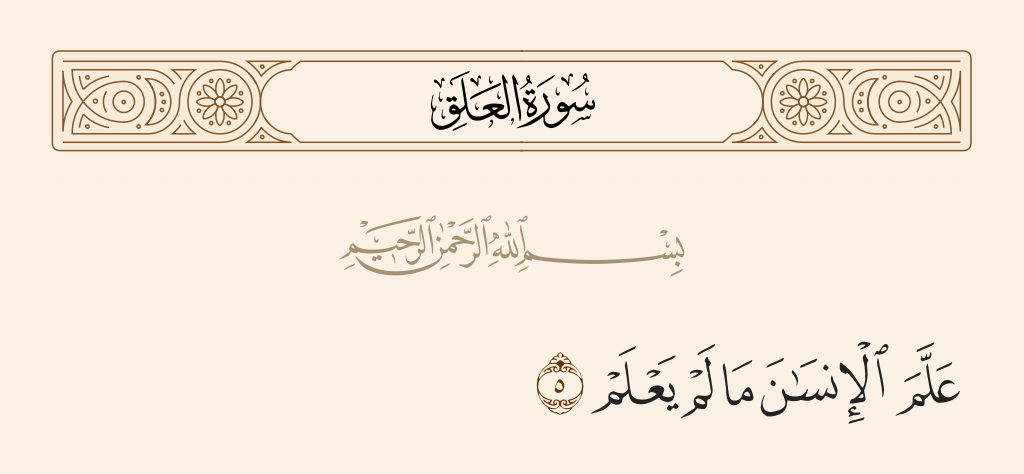 سُورَةُ العَلَقِ
بِسْمِ ٱللَّهِ ٱلرَّحْمَٰنِ ٱلرَّحِيمِ
عَلَّمَ ٱلْإِنسَـٰنَ مَا لَمْ يَعْلَمْ ٥